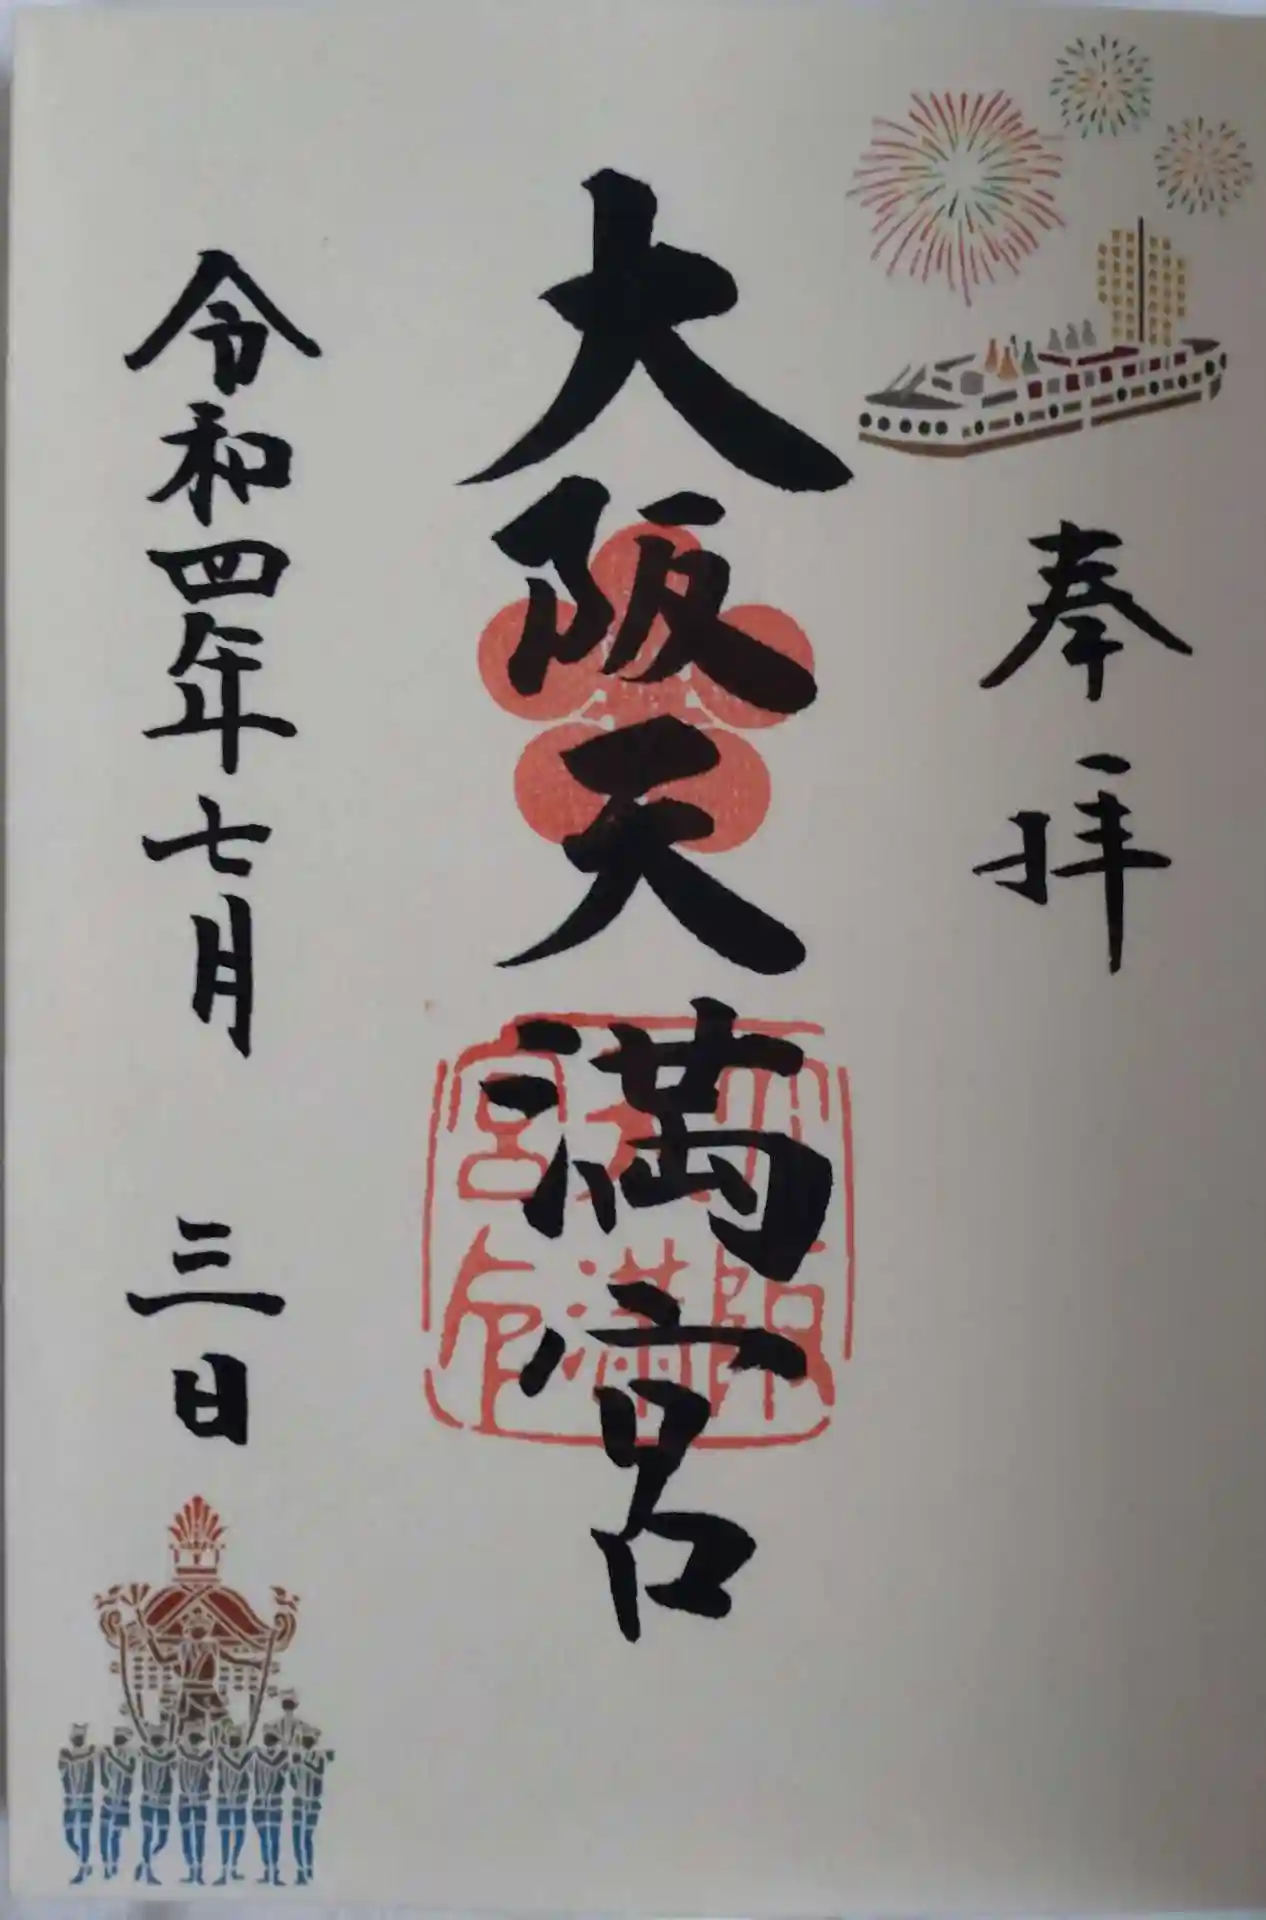 奉拝
大阪天満宮
大阪天満宮印
令和四年七月三日